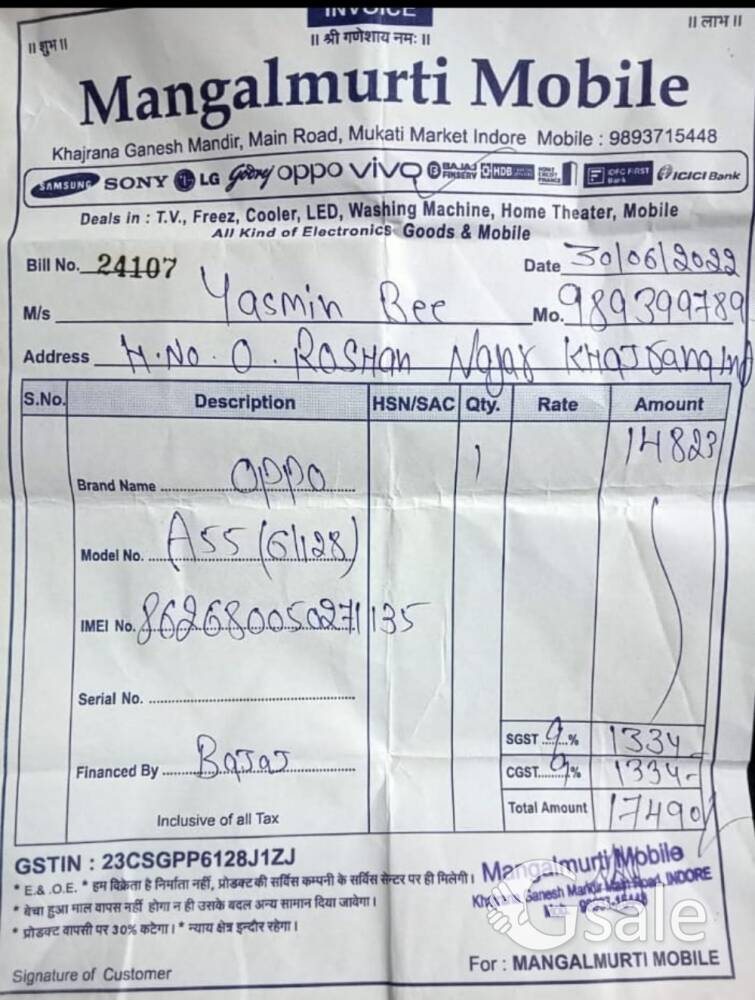 INVOICE
॥ शुभ ॥
॥ श्री गणेशाय नमः ॥
॥ लाभ ॥
Mangalmurti Mobile
Khajrana Ganesh Mandir, Main Road, Mukati Market Indore Mobile : 9893715448
SAMSUNG SONY LG Godrej oppo vivo BAJAJ FINSERV HDB HOME CREDIT FINANCE IDFC FIRST Bank ICICI Bank
Deals in : T.V., Freez, Cooler, LED, Washing Machine, Home Theater, Mobile
All Kind of Electronics Goods & Mobile
Bill No. 24107 Date 30/06/2022
M/s Yasmin Bee Mo. 989399789
Address H.No. O. ROSHAN Nagar
S.No. Description HSN/SAC Qty. Rate Amount
1 14823
Brand Name OPPO
Model No. A55 (6/128)
IMEI No. 862680050271135
Serial No.
SGST 9 % 1334
Financed By Bajaj CGST 9 % 1334
Inclusive of all Tax Total Amount 17490
GSTIN : 23CSGPP6128J1ZJ
* E.& .O.E. * हम विक्रेता है निर्माता नहीं, प्रोडक्ट की सर्विस कम्पनी के सर्विस सेन्टर पर ही मिलेगी।
* बेचा हुआ माल वापस नहीं होगा न ही उसके बदल अन्य सामान दिया जावेगा।
* प्रोडक्ट वापसी पर 30% कटेगा। * न्याय क्षेत्र इन्दौर रहेगा।
Mangalmurti Mobile
Khajrana Ganesh Mandir Main Road, INDORE
Gsale
Signature of Customer For : MANGALMURTI MOBILE